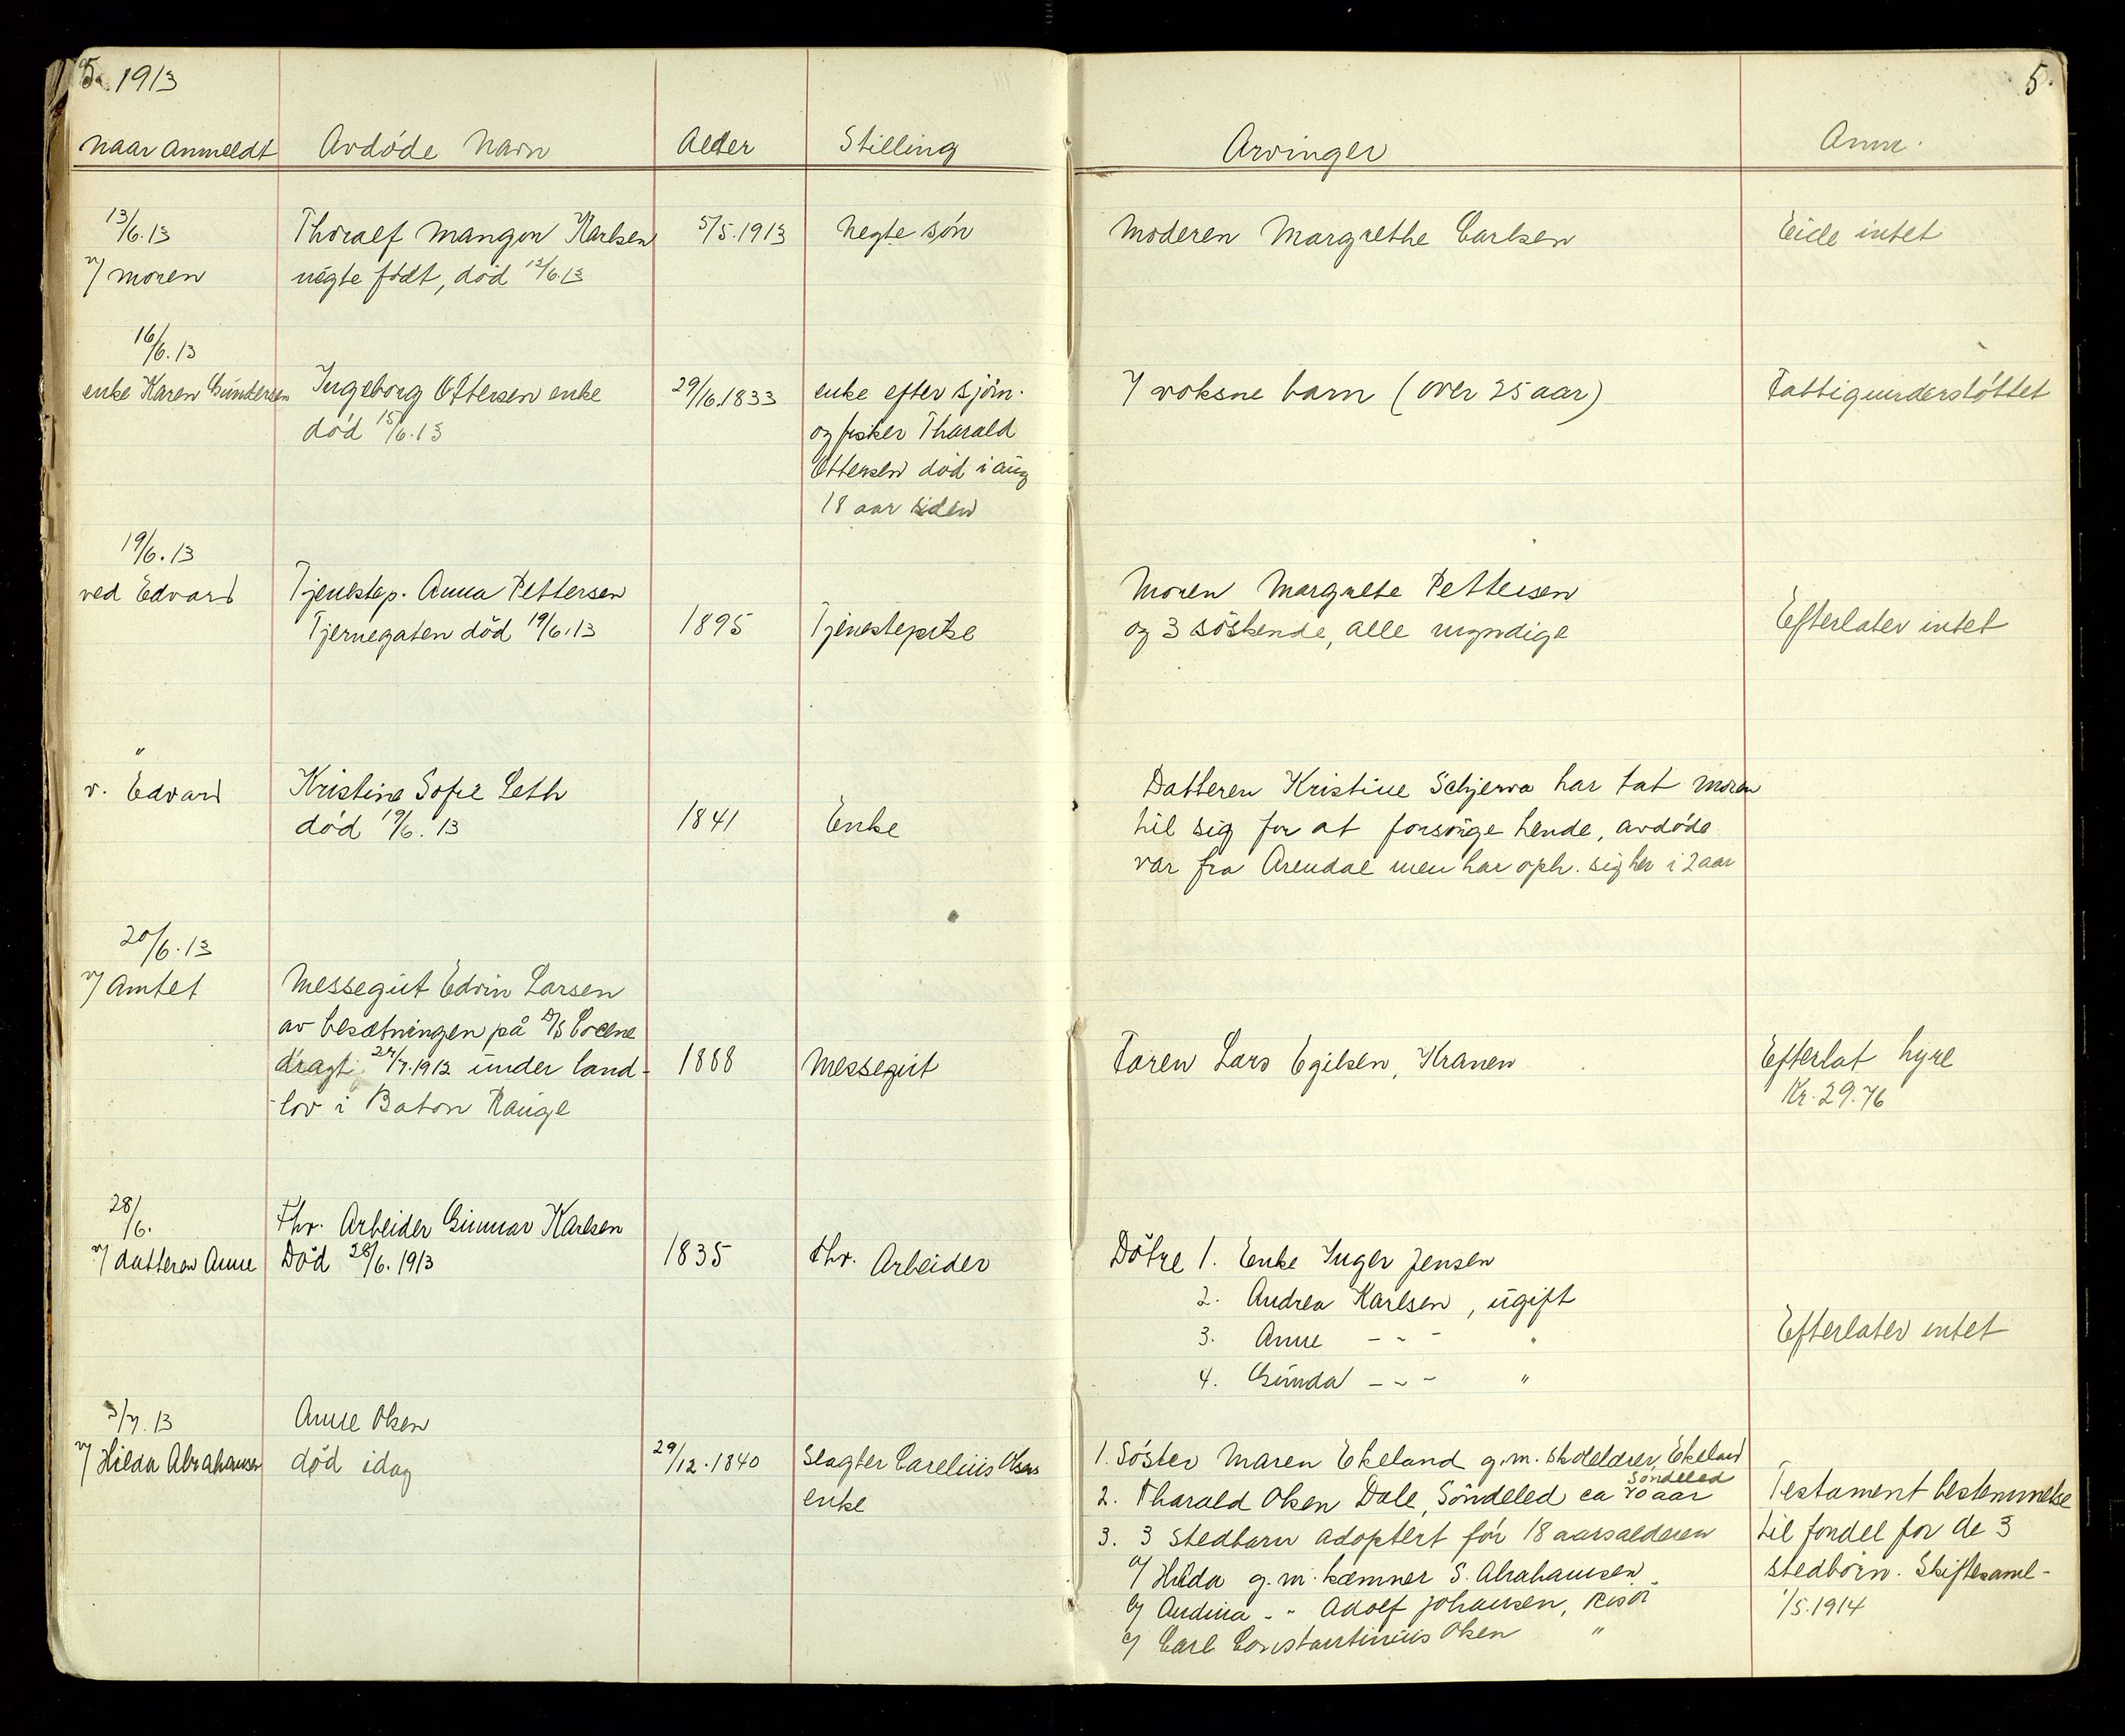 5. 1913
5.
Naar anmeldt Avdøde Navn Alder Stilling Arvinger Anm.
13/6.13 Thoralf Mangon Karlsen 5/5.1913 Uegte søn Moderen Margrethe Carlsen Eide intet
v/ moren uegte født, død 12/6.13
16/6.13
enke Karen Gundersen Ingeborg Ottersen enke 29/6.1833 enke efter sjøm. 7 voksne barn (over 25 aar) Fattigunderstøttet
død 15/6.13 og fisker Tharald
Ottersen død i aug
18 aar siden
19/6.13
ved Edvard Tjenestep. Anna Pettersen Moren Margrete Pettersen
Tjernegaten död 19/6.13 1895 Tjenestepike og 3 söskende, alle myndige Efterlater intet
"
v. Edvard Kristine Sofie Leth Datteren Kristine Schjerva har tat moren
død 19/6.13 1841 Enke til sig for at forsörge hende, avdøde
var fra Arendal men har oph. sig her i 2 aar
20/6.13
v/ Amtet Messegut Edvin Larsen
av besætningen på D/S
dragt 24/7.1912 under land- 1888 Messegut Faren Lars Egilsen, Kranen Efterlat hyre
lov i Baton Rauge Kr. 29.76
28/6. Fhv. Arbeider Gunnar Karlsen
v/ datteren Anne Död 28/6.1913 1835 Fhv. Arbeider Dötre 1. Enke Inger Jensen
2. Andrea Karlsen, ugift
3. Anne - - - " Efterlater intet
4. Gunda - - - "
3/7.13 Anne Olsen
v/ Hilda Abrahamsen død idag 29/12.1840 Slagter Carelius Olsens 1. Söster Maren Ekeland g.m. skolelærer Ekeland
Söndeled
enke 2. Tharald Olsen Dale, Söndeled ca 70 aar Testament bestemmelse
3. 3 Stedbarn adoptert før 18 aarsalderen til fordel for de 3
a/ Hilda g.m. kæmner S. Abrahamsen stedbørn. Skiftesaml-
b/ Andina - " Adolf Johansen, Risör 1/5.1914
c/ Carl Constantinius Olsen "